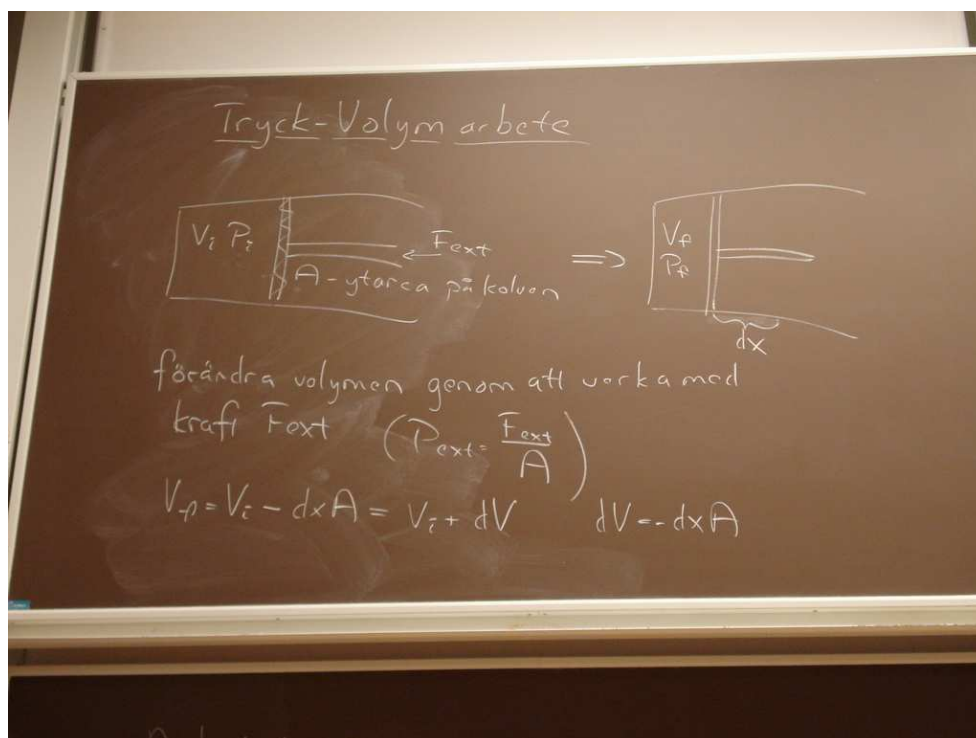 Tryck-Volym arbete
Vi Pi
Fext
A-ytarea på kolven
⇒
Vf
Pf
dx
förändra volymen genom att verka med
kraft Fext (Pext = Fext/A)
Vf = Vi - dxA = Vi + dV dV = -dxA